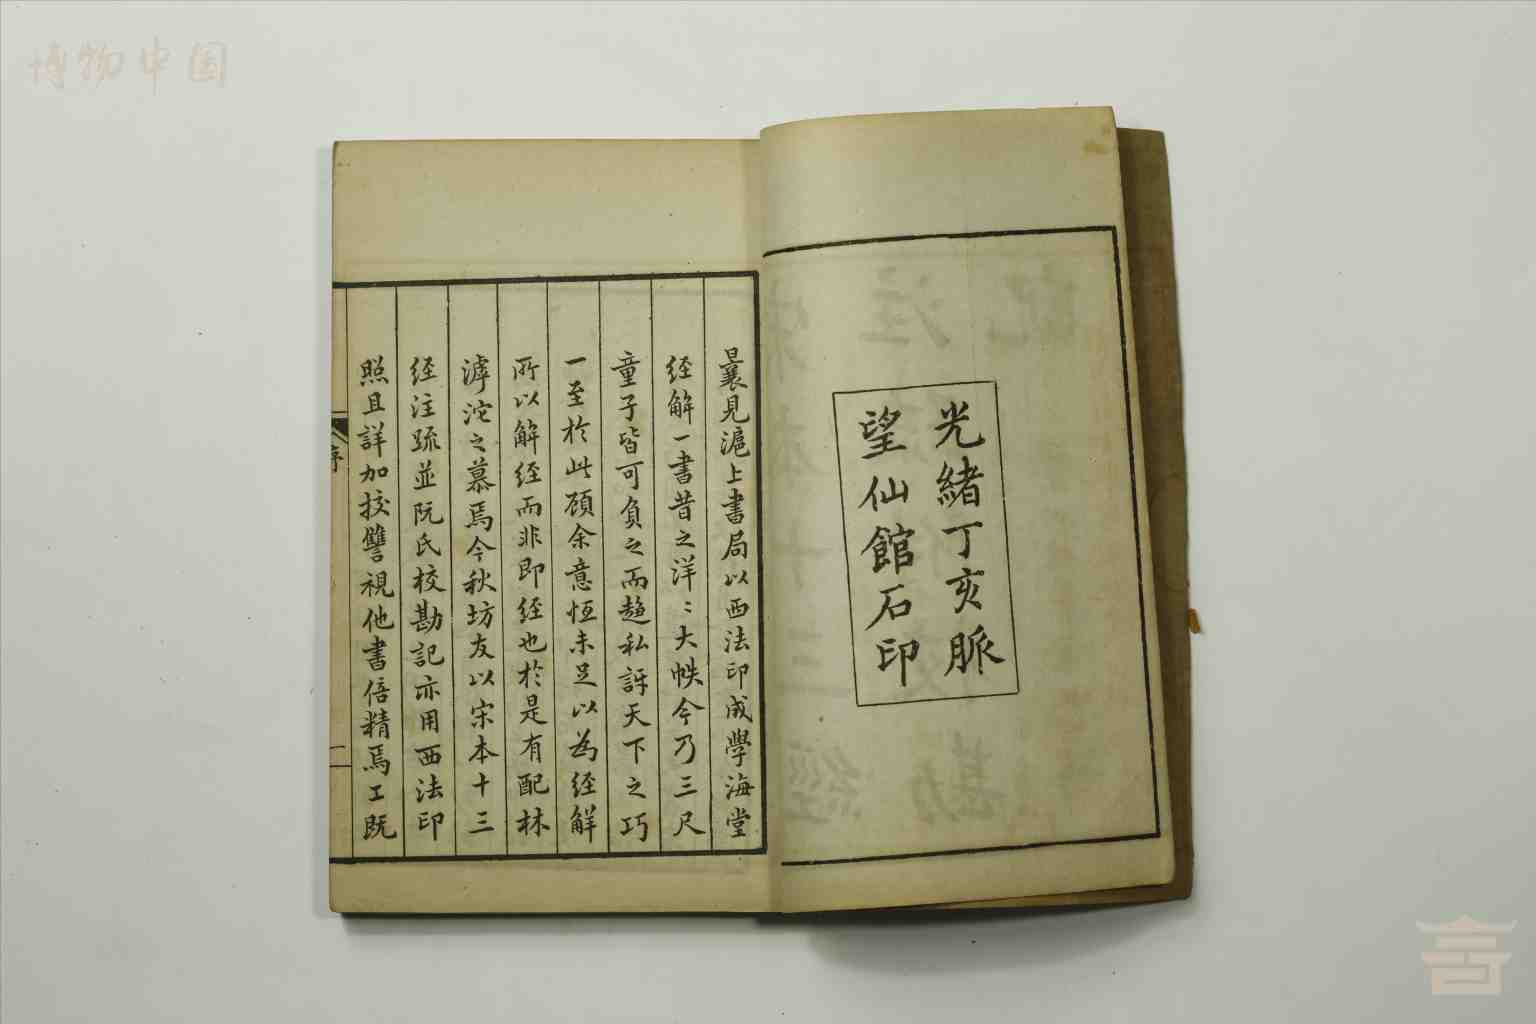 博物中国
光緒丁亥脈
望仙館石印
曩見滬上書局以西法印成學海堂
經解一書昔之洋〻大帙今乃三尺
童子皆可負之而趨私訝天下之巧
一至於此顧余意恒未足以為經解
所以解經而非即經也於是有配林
滹沱之慕焉今秋坊友以宋本十三
經注疏並阮氏校勘記亦用西法印
照且詳加挍讐視他書倍精焉工既
序
一